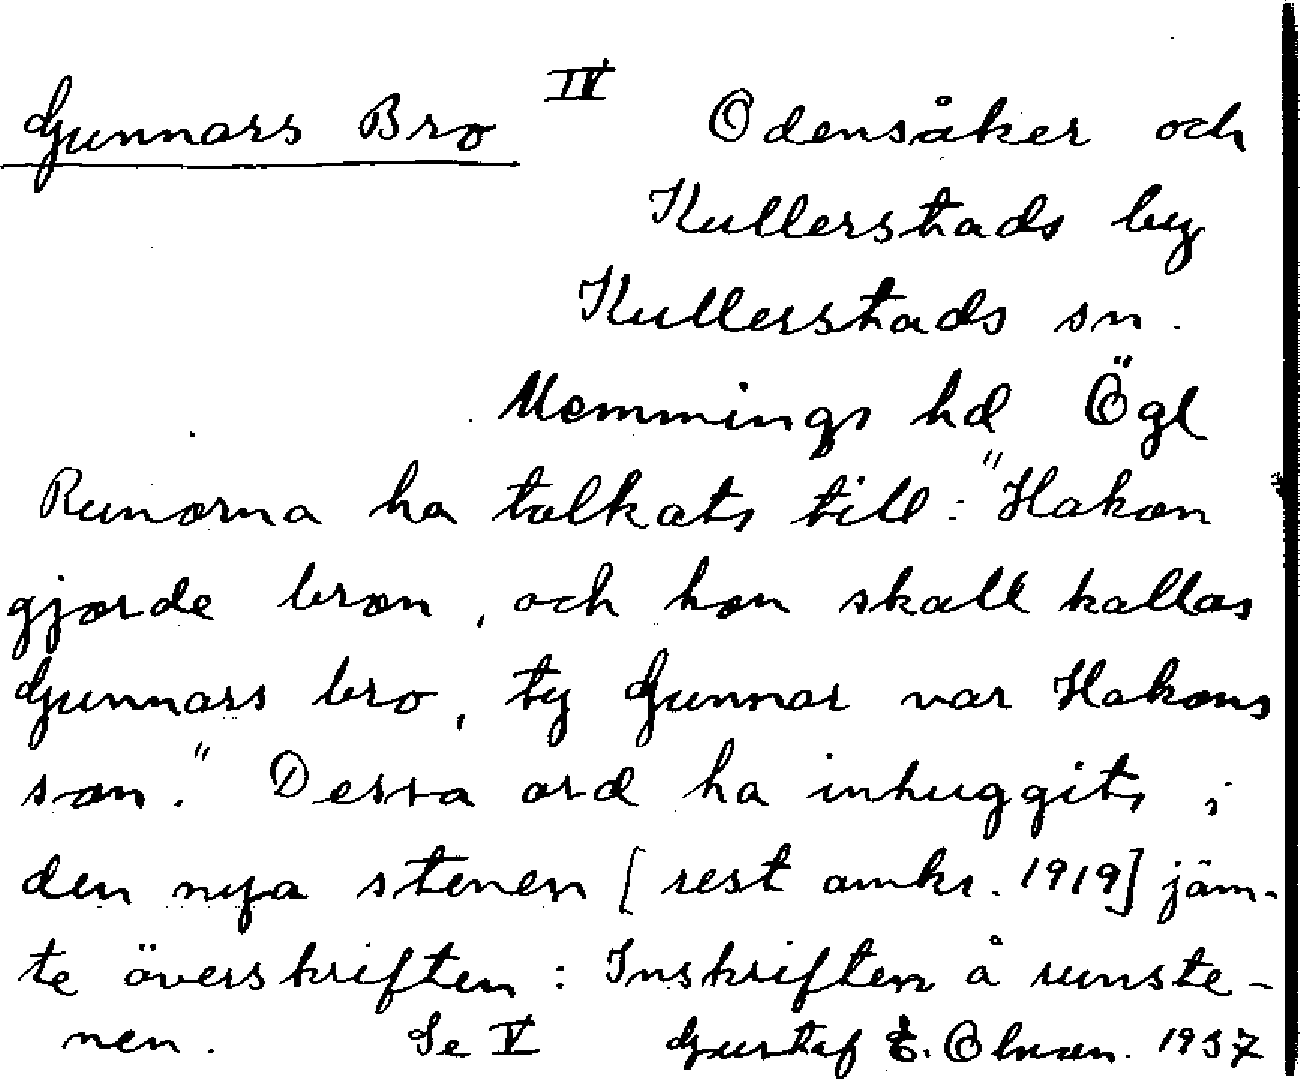 Gunnars Bro IV Odensåker och
Kullerstads by
Kullerstads sn.
Memmings hd Ögl
Runorna ha tolkats till: "Hakon
gjorde bron, och hon skall kallas
Gunnars bro, ty Gunnar var Hakons
son." Dessa ord ha inhuggits i
den nya stenen [rest omkr. 1919] jäm-
te överskriften: Inskriften å runste-
nen. Se V Gustaf E. Olsson. 1937